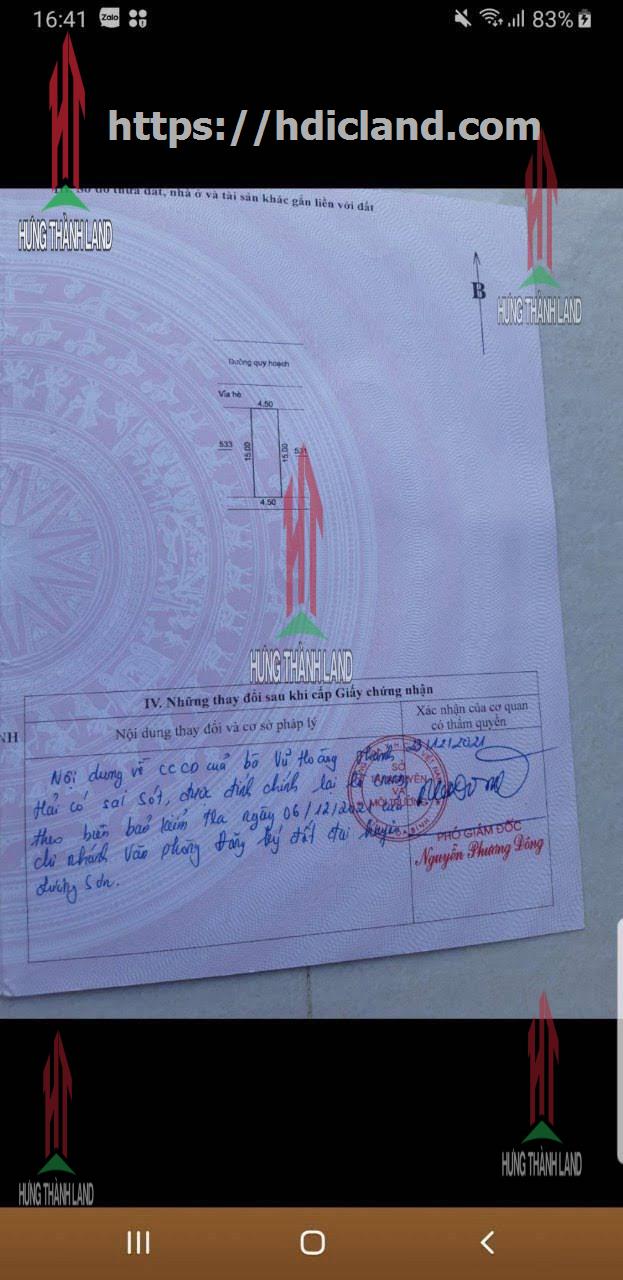 16:41 Zalo 83%
https://hdicland.com
HƯNG THÀNH LAND
Sơ đồ thửa đất, nhà ở và tài sản khác gắn liền với đất
B
HƯNG THÀNH LAND
Đường quy hoạch
Vỉa hè
4.50
533 15.00 15.00 531
4.50
HƯNG THÀNH LAND
IV. Những thay đổi sau khi cấp Giấy chứng nhận
NH Nội dung thay đổi và cơ sở pháp lý
Xác nhận của cơ quan
có thẩm quyền
Nội dung về CCCD của bà Vũ Hoàng
Hải có sai sót, được đính chính lại
theo biên bản kiểm tra ngày 06/12/2021 của
chi nhánh Văn phòng Đăng ký đất đai huyện
Lương Sơn.
SỞ
TÀI NGUYÊN
VÀ
MÔI TRƯỜNG
/12/2021
PHÓ GIÁM ĐỐC
Nguyễn Phương Đông
HƯNG THÀNH LAND
HƯNG THÀNH LAND